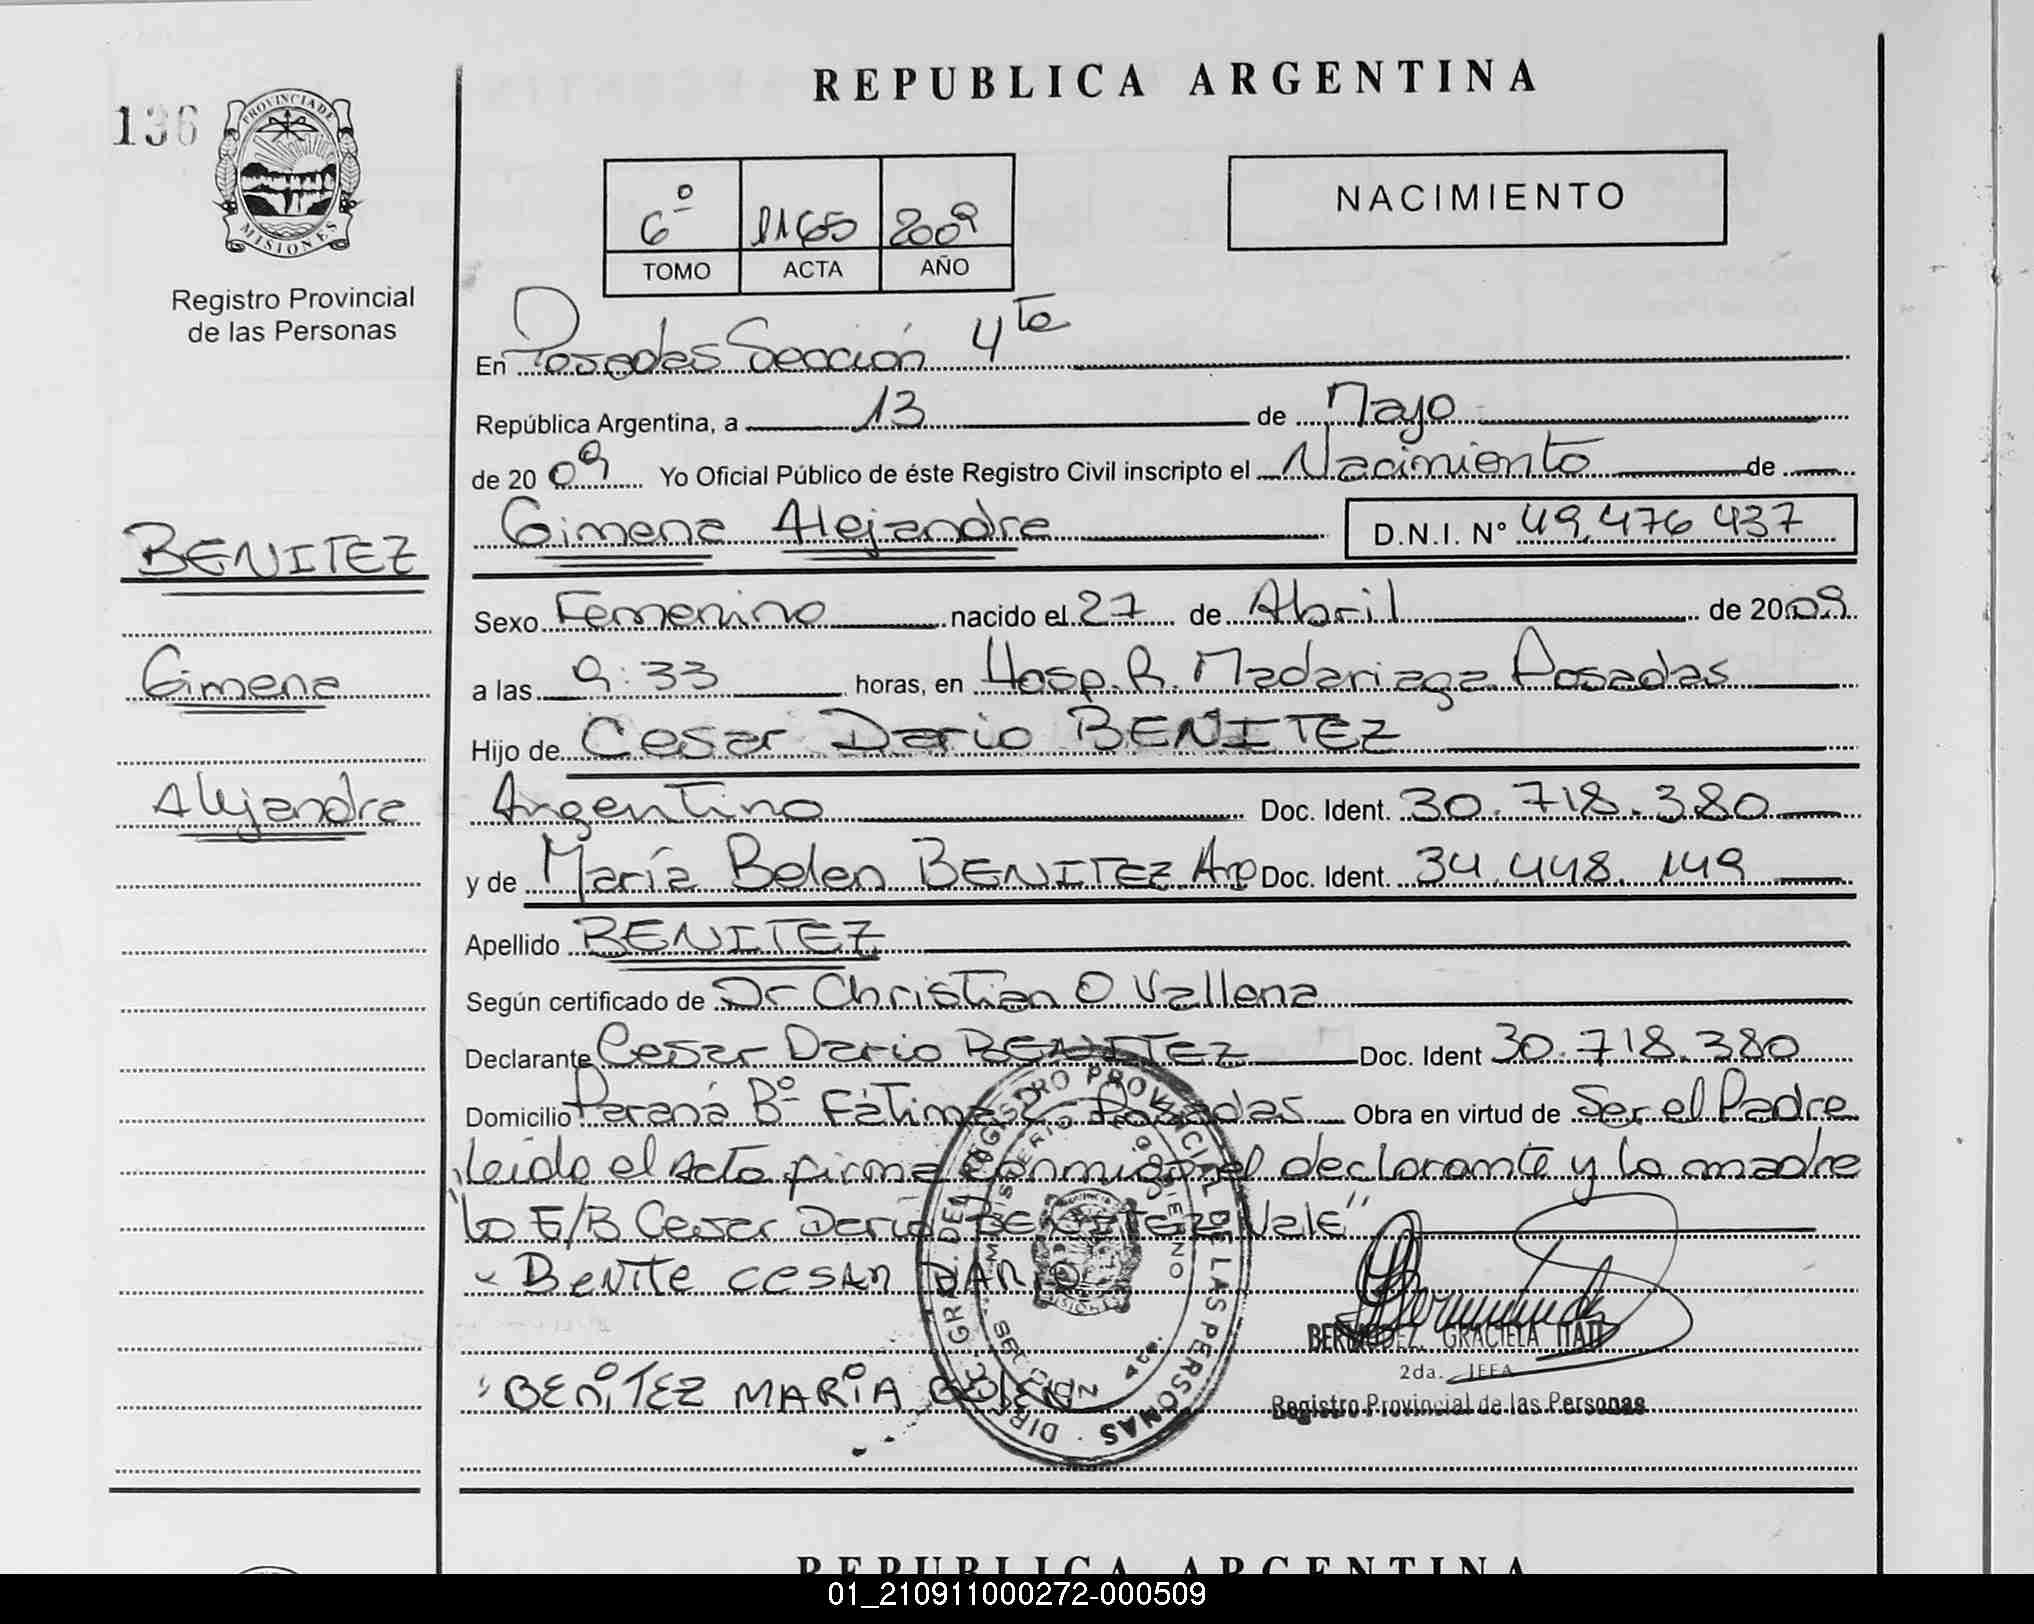 REPUBLICA ARGENTINA
136
PROVINCIA DE
MISIONES
Registro Provincial
de las Personas
6º 1165 2009
TOMO ACTA AÑO
NACIMIENTO
En Posadas Sección 4ta
República Argentina, a 13 de Mayo
de 2009 Yo Oficial Público de éste Registro Civil inscripto el Nacimiento de
Gimena Alejandra D.N.I. Nº 49.476 437
BENITEZ
Gimena
Alejandra
Sexo Femenino nacido el 27 de Abril de 2009
a las 9:33 horas, en Hosp. R. Madariaga Posadas
Hijo de Cesar Dario BENITEZ
Argentino Doc. Ident. 30.718.380
y de María Belen BENITEZ Arg Doc. Ident. 34.448.149
Apellido BENITEZ
Según certificado de Dr Christian O Vallena
Declarante Cesar Dario BENITEZ Doc. Ident 30.718.380
Domicilio Paraná Bº Fátima Posadas Obra en virtud de Ser el Padre
leido el Acta firma conmigo el declarante y la madre
"Lo E/B Cesar Dario BENITEZ Vale"
Benite CESAR DARIO
BENITEZ MARIA BELEN
DIRC. GRAL. DEL REGISTRO PROVINCIAL DE LAS PERSONAS
MINISTERIO DE GOBIERNO
MISIONES
BERMUDEZ, GRACIELA ITATI
2da. JEFA
Registro Provincial de las Personas
REPUBLICA ARGENTINA
01_210911000272-000509